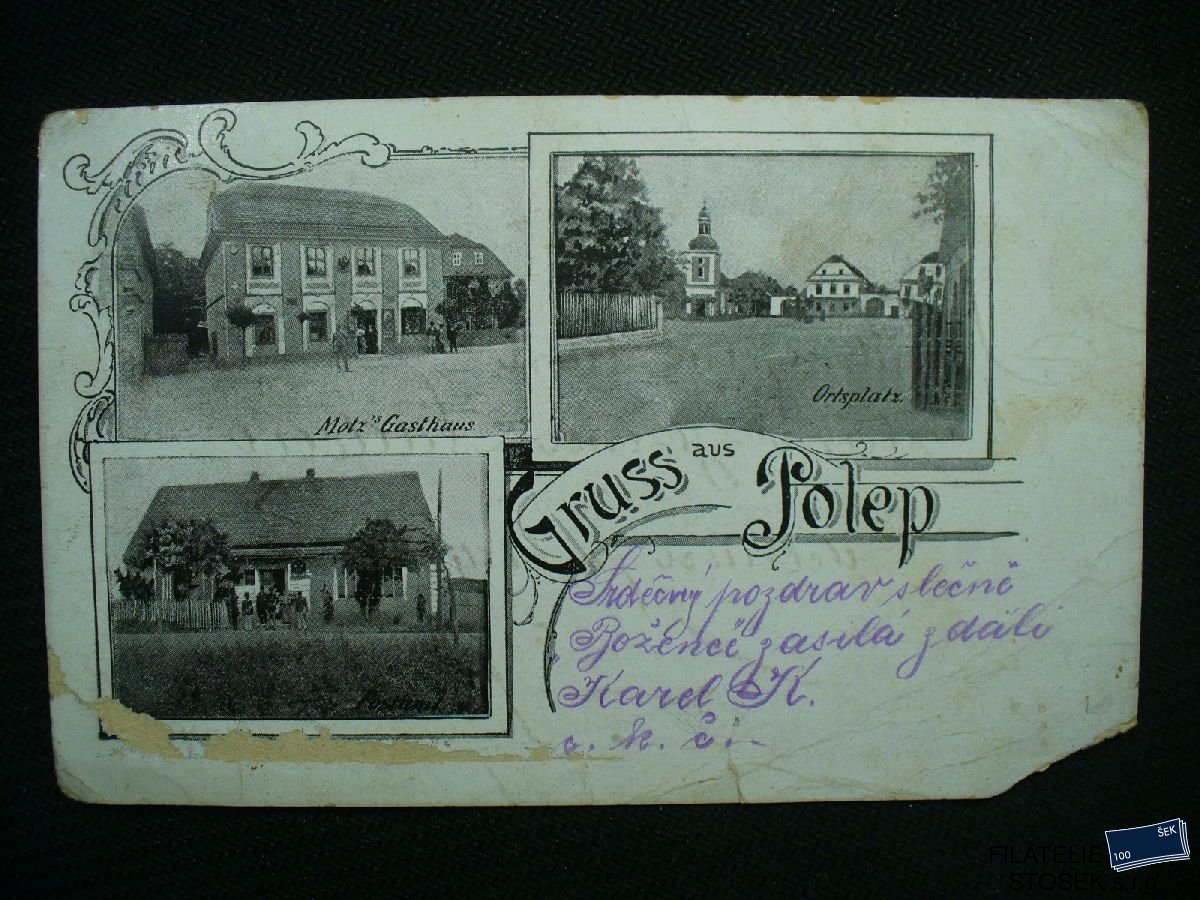 Motz's Gasthaus
Ortsplatz.
Gruss aus Polep
Srdečný pozdrav slečně
Boženě zasílá z dáli
Karel K.
c. k. č.
FILATELIE
STOSEK s.r.o.
100 ŠEK